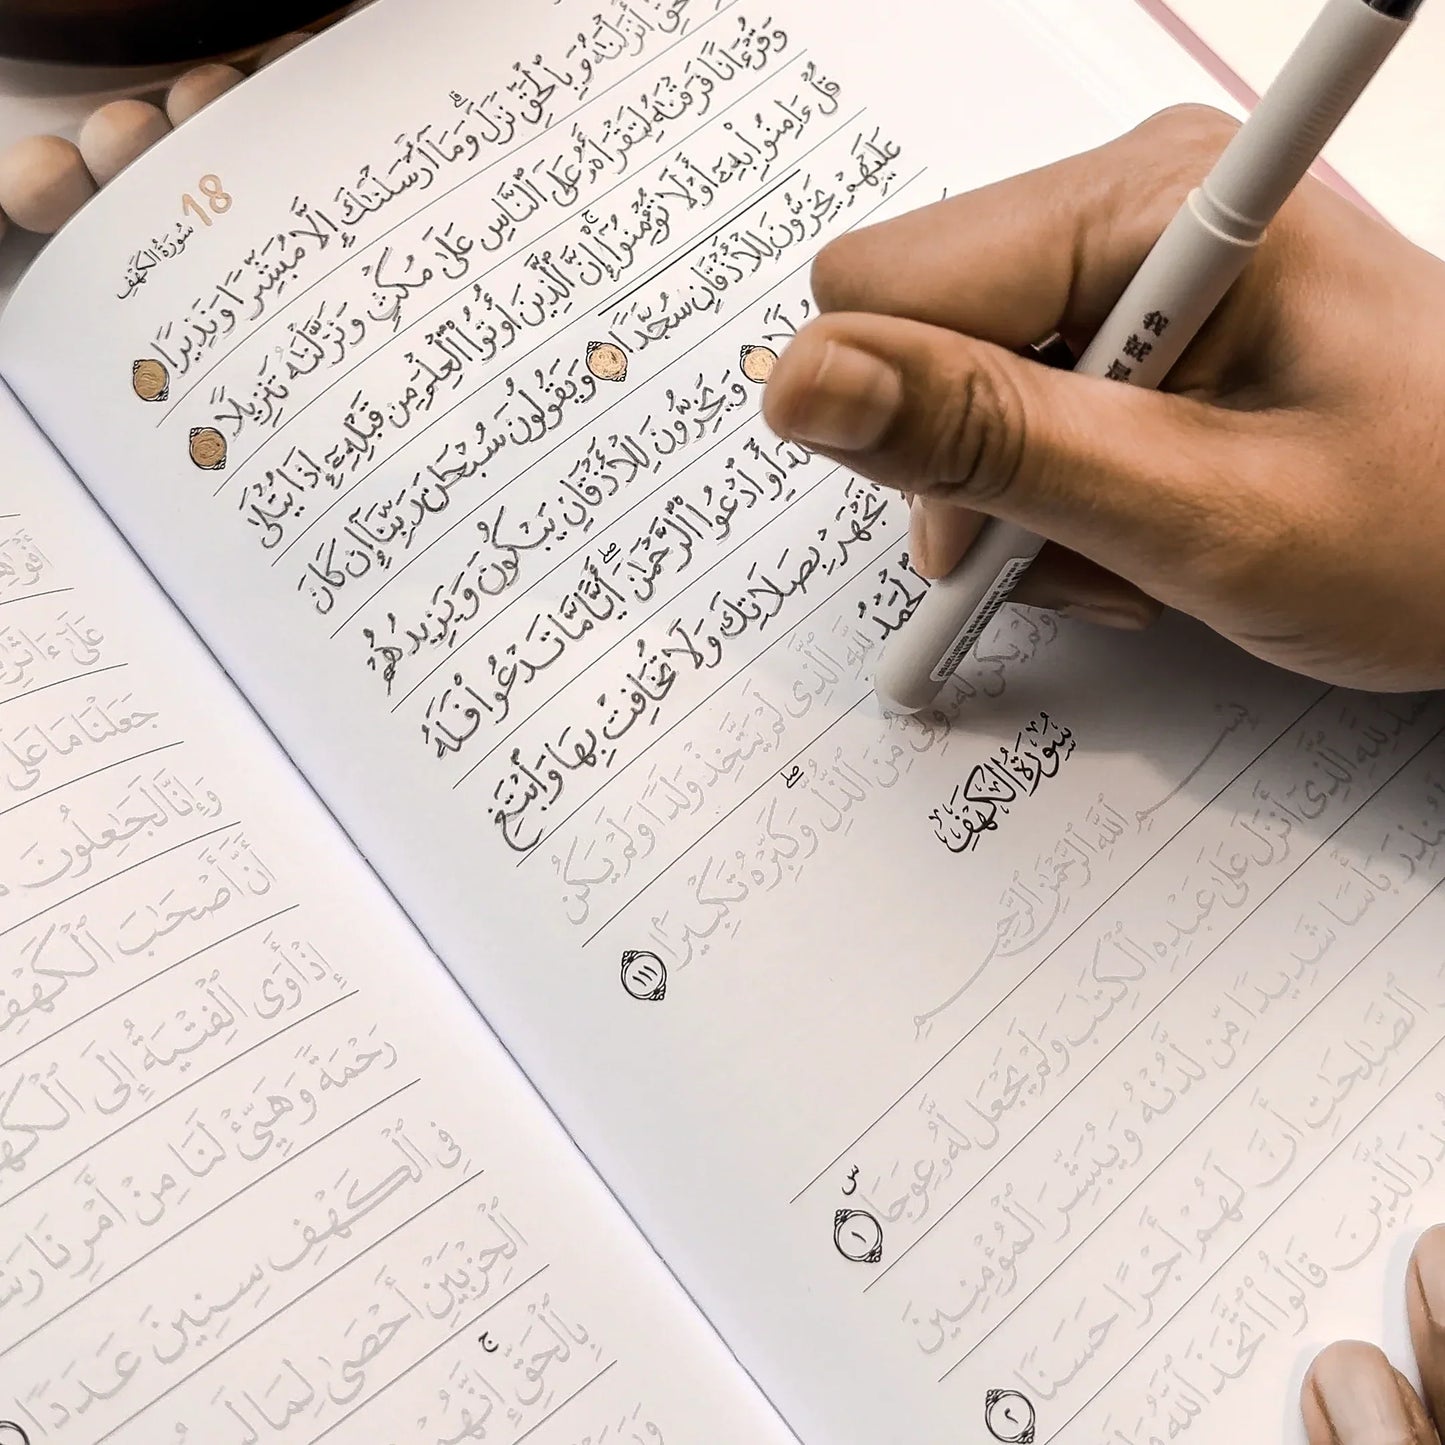 18 سُورَةُ الكَهْفِ
أَنزَلْنَٰهُ وَبِٱلْحَقِّ نَزَلَ ۗ وَمَآ أَرْسَلْنَٰكَ إِلَّا مُبَشِّرًا وَنَذِيرًا
وَقُرْءَانًا فَرَقْنَٰهُ لِتَقْرَأَهُۥ عَلَى ٱلنَّاسِ عَلَىٰ مُكْثٍ وَنَزَّلْنَٰهُ تَنزِيلًا
قُلْ ءَامِنُوا۟ بِهِۦٓ أَوْ لَا تُؤْمِنُوٓا۟ ۚ إِنَّ ٱلَّذِينَ أُوتُوا۟ ٱلْعِلْمَ مِن قَبْلِهِۦٓ إِذَا يُتْلَىٰ
عَلَيْهِمْ يَخِرُّونَ لِلْأَذْقَانِ سُجَّدًا وَيَقُولُونَ سُبْحَٰنَ رَبِّنَآ إِن كَانَ
لَا وَيَخِرُّونَ لِلْأَذْقَانِ يَبْكُونَ وَيَزِيدُهُمْ
أَوِ ٱدْعُوا۟ ٱلرَّحْمَٰنَ ۖ أَيًّا مَّا تَدْعُوا۟ فَلَهُ
تَجْهَرْ بِصَلَاتِكَ وَلَا تُخَافِتْ بِهَا وَٱبْتَغِ
ٱلْحَمْدُ لِلَّهِ ٱلَّذِى لَمْ يَتَّخِذْ وَلَدًا وَلَمْ يَكُن
وَلَمْ يَكُن لَّهُۥ وَلِىٌّ مِّنَ ٱلذُّلِّ ۖ وَكَبِّرْهُ تَكْبِيرًۢا ١١١
سُورَةُ الكَهْفِ
بِسْمِ ٱللَّهِ ٱلرَّحْمَٰنِ ٱلرَّحِيمِ
لِلَّهِ ٱلَّذِىٓ أَنزَلَ عَلَىٰ عَبْدِهِ ٱلْكِتَٰبَ وَلَمْ يَجْعَل لَّهُۥ عِوَجَا ۜ ١
بَأْسًا شَدِيدًا مِّن لَّدُنْهُ وَيُبَشِّرَ ٱلْمُؤْمِنِينَ
ٱلصَّٰلِحَٰتِ أَنَّ لَهُمْ أَجْرًا حَسَنًا ٢
ٱلَّذِينَ قَالُوا۟ ٱتَّخَذَ ٱللَّهُ
عَلَىٰٓ ءَاثَٰرِ
جَعَلْنَا مَا عَلَى
وَإِنَّا لَجَٰعِلُونَ
أَنَّ أَصْحَٰبَ ٱلْكَهْفِ
إِذْ أَوَى ٱلْفِتْيَةُ إِلَى ٱلْكَهْفِ
رَحْمَةً وَهَيِّئْ لَنَا مِنْ أَمْرِنَا
فِى ٱلْكَهْفِ سِنِينَ عَدَدًا
ٱلْحِزْبَيْنِ أَحْصَىٰ لِمَا
بِٱلْحَقِّ ۚ إِنَّهُمْ